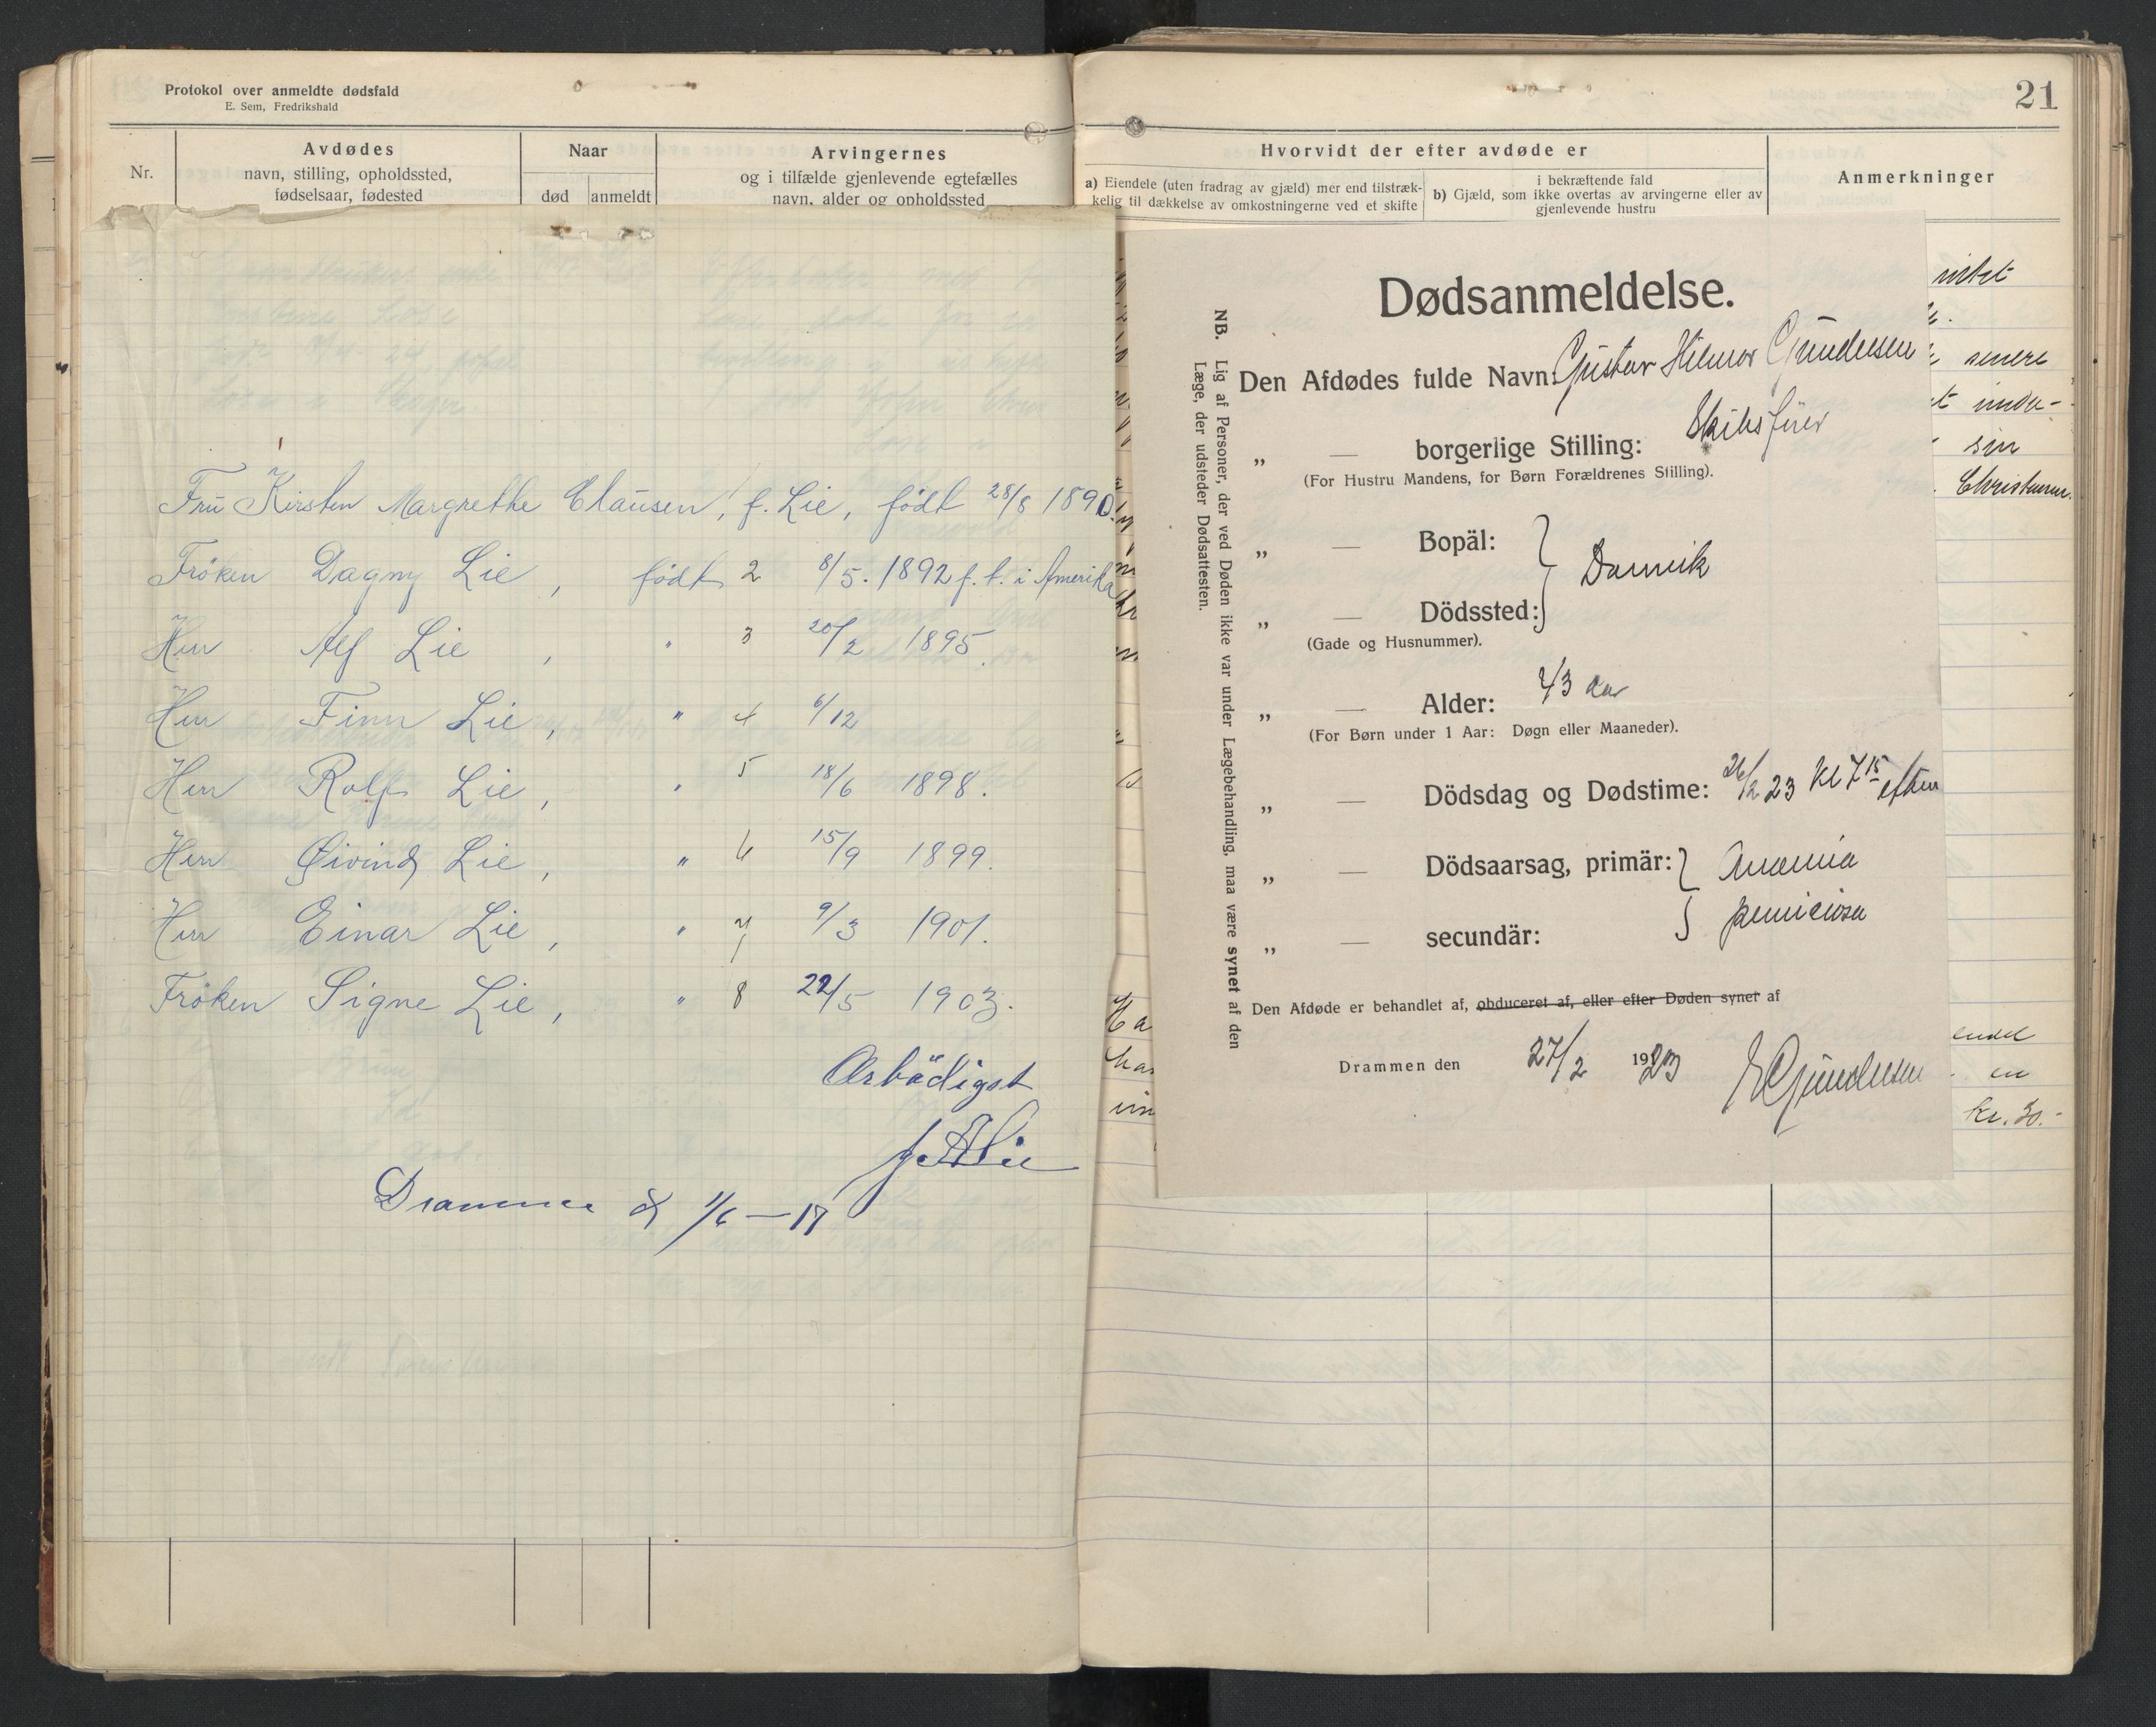 Protokol over anmeldte dødsfald
E. Sem, Fredrikshald
Nr.
Avdødes
navn, stilling, opholdssted,
fødselsaar, fødested
Naar
død
anmeldt
Arvingernes
og i tilfælde gjenlevende egtefælles
navn, alder og opholdssted
Fru Kirsten Margrethe Clausen, f. Lie, født 28/8 1890.
Fröken Dagny Lie, født 2 8/5. 1892 f. t. i Amerika
Herr Alf Lie, " 3 20/2 1895.
Herr Finn Lie, " 4 6/12
Herr Rolf Lie, " 5 18/6 1898.
Herr Øivind Lie, " 6 15/9 1899.
Herr Einar Lie, " 7 9/3 1901.
Fröken Signe Lie, " 8 22/5 1903.
Ærbödigst
Drammen d 1/6 - 17
21
Hvorvidt der efter avdøde er
a) Eiendele (uten fradrag av gjæld) mer end tilstræk-
kelig til dækkelse av omkostningerne ved et skifte
b) Gjæld, som
i bekræftende fald
ikke overtas av arvingerne eller av
gjenlevende hustru
Anmerkninger
senere
sin
en
kr. 30.-
Dødsanmeldelse.
NB. Lig af Personer, der ved Døden ikke var under Lægebehandling, maa være synet af den
Læge, der udsteder Dødsattesten.
Den Afdødes fulde Navn: Gustav Hilmar Gundersen
„ — borgerlige Stilling: Skibsfører
(For Hustru Mandens, for Børn Forældrenes Stilling).
„ — Bopäl:
Danvik
„ — Dödssted:
(Gade og Husnummer).
„ — Alder: 43 aar
(For Børn under 1 Aar: Døgn eller Maaneder).
„ — Dödsdag og Dødstime: 26/2 23 Kl 7 15 eftm
„ — Dödsaarsag, primär: Anæmia
perniciosa
„ — secundär:
Den Afdøde er behandlet af, obduceret af, eller efter Døden synet af
Drammen den 27/2 1923
Gundersen